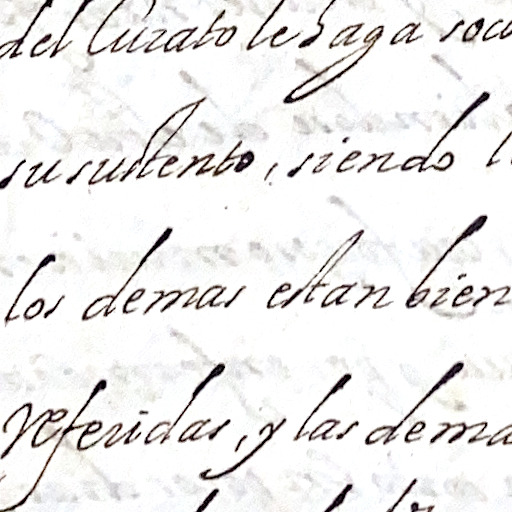 del Curato le haga soco
su sustento, siendo l
los demas estan bien
referidas, y las dema